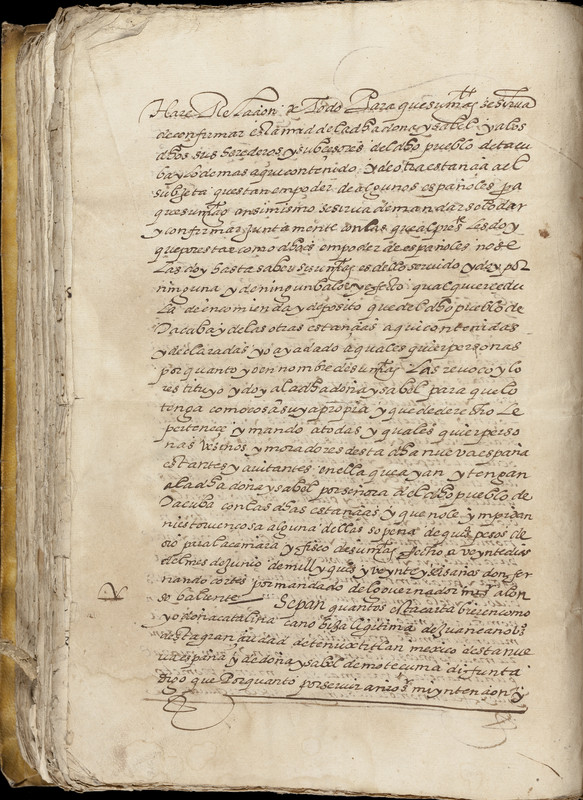 Hare Relacion de todo Para que su mag. se sirva
de confirmar esta mrd de la dha doña ysabel y a los
dhos sus herederos y subçesores del dho pueblo de tacu
ba y lo demas aqui contenido y de otra estancia a el
subjeta questan en poder de algunos españoles pa
que su mag. ansi mismo se sirva de mandarselo dar
y confirmar juntamente con las que al presente le doy
que por estar como dho es en poder de españoles no se
las doy hasta saber si su mag. es dello servido y doy por
ninguna y de ningun balor y efeto qualquier cedu
la de encomienda y deposito que del dho pueblo de
Tacuba y de las otras estancias aqui contenidas
y declaradas yo aya dado a qualesquier personas
por quanto yo en nombre de su mag. Las revoco y lo
restituyo y doy a la dha doña ysabel para que lo
tenga como cosa suya propia y que de derecho le
pertenece y mando a todas y qualesquier perso
nas vezinos y moradores desta dha nueva españa
estantes y avitantes en ella que ayan y tengan
a la dha doña ysabel por señora del dho pueblo de
Tacuba con las dhas estancias y que no le ympidan
ni estorven cosa alguna dellas so pena de quis pesos de
oro para la camara y fisco de su mag. fecho a veynte dias
del mes de junio de mill y quis y veynte y seis años don fer
nando cortes por mandado del governador mi sr alon
so baliente Sepan quantos esta carta bieren como
yo doña catalina cano hija ligitima de Juan cano vzo
desta gran ciudad de tenuctitlan mexico desta nue
va españa y de doña ysabel de moteçuma difunta
digo que Por quanto por servir a nro sr mi yntencion y